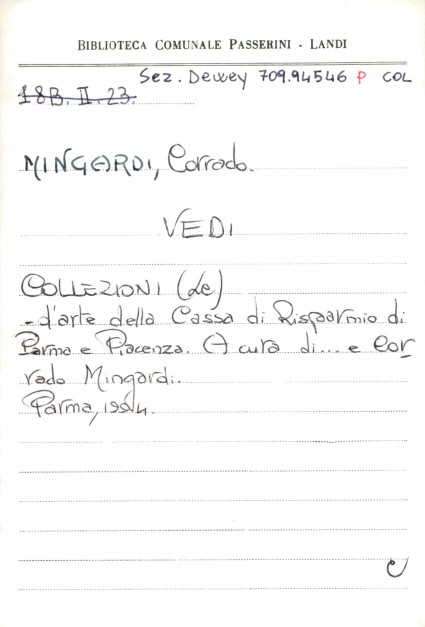 BIBLIOTECA COMUNALE PASSERINI - LANDI
Sez. Dewey 709.94546 P COL
18B. II. 23.
MINGARDI, Corrado.
VEDI
COLLEZIONI (Le)
- d'arte della Cassa di Risparmio di
Parma e Piacenza. A cura di... e Cor
rado Mingardi.
Parma, 1994.